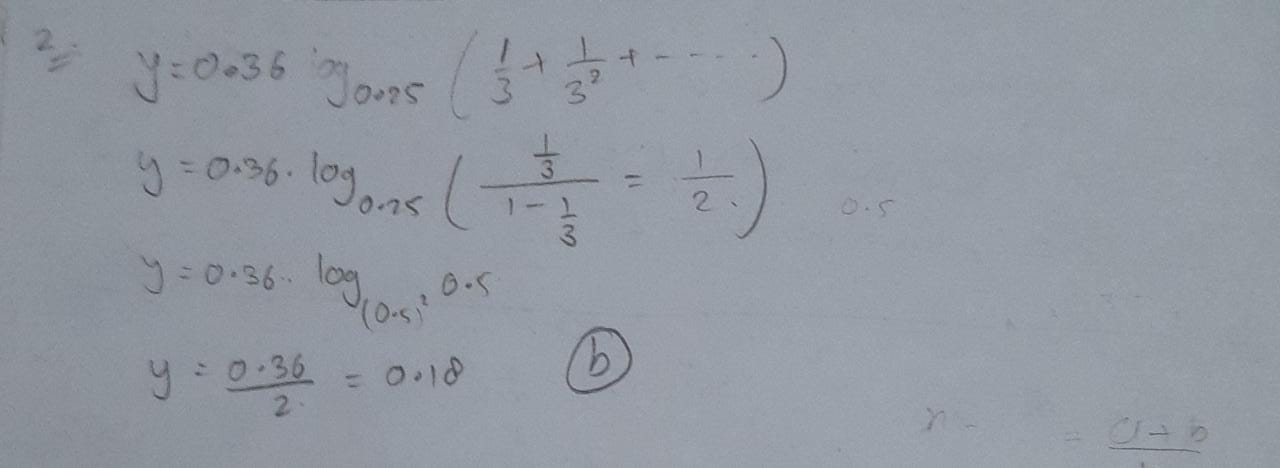 2= y=0.36 log_{0.25} ( 1/3 + 1/3² + ----- )
y=0.36. log_{0.25} ( (1/3)/(1-1/3) = 1/2. ) 0.5
y=0.36.. log_{(0.5)²} 0.5
y = 0.36/2. = 0.18 (b)
= a+b